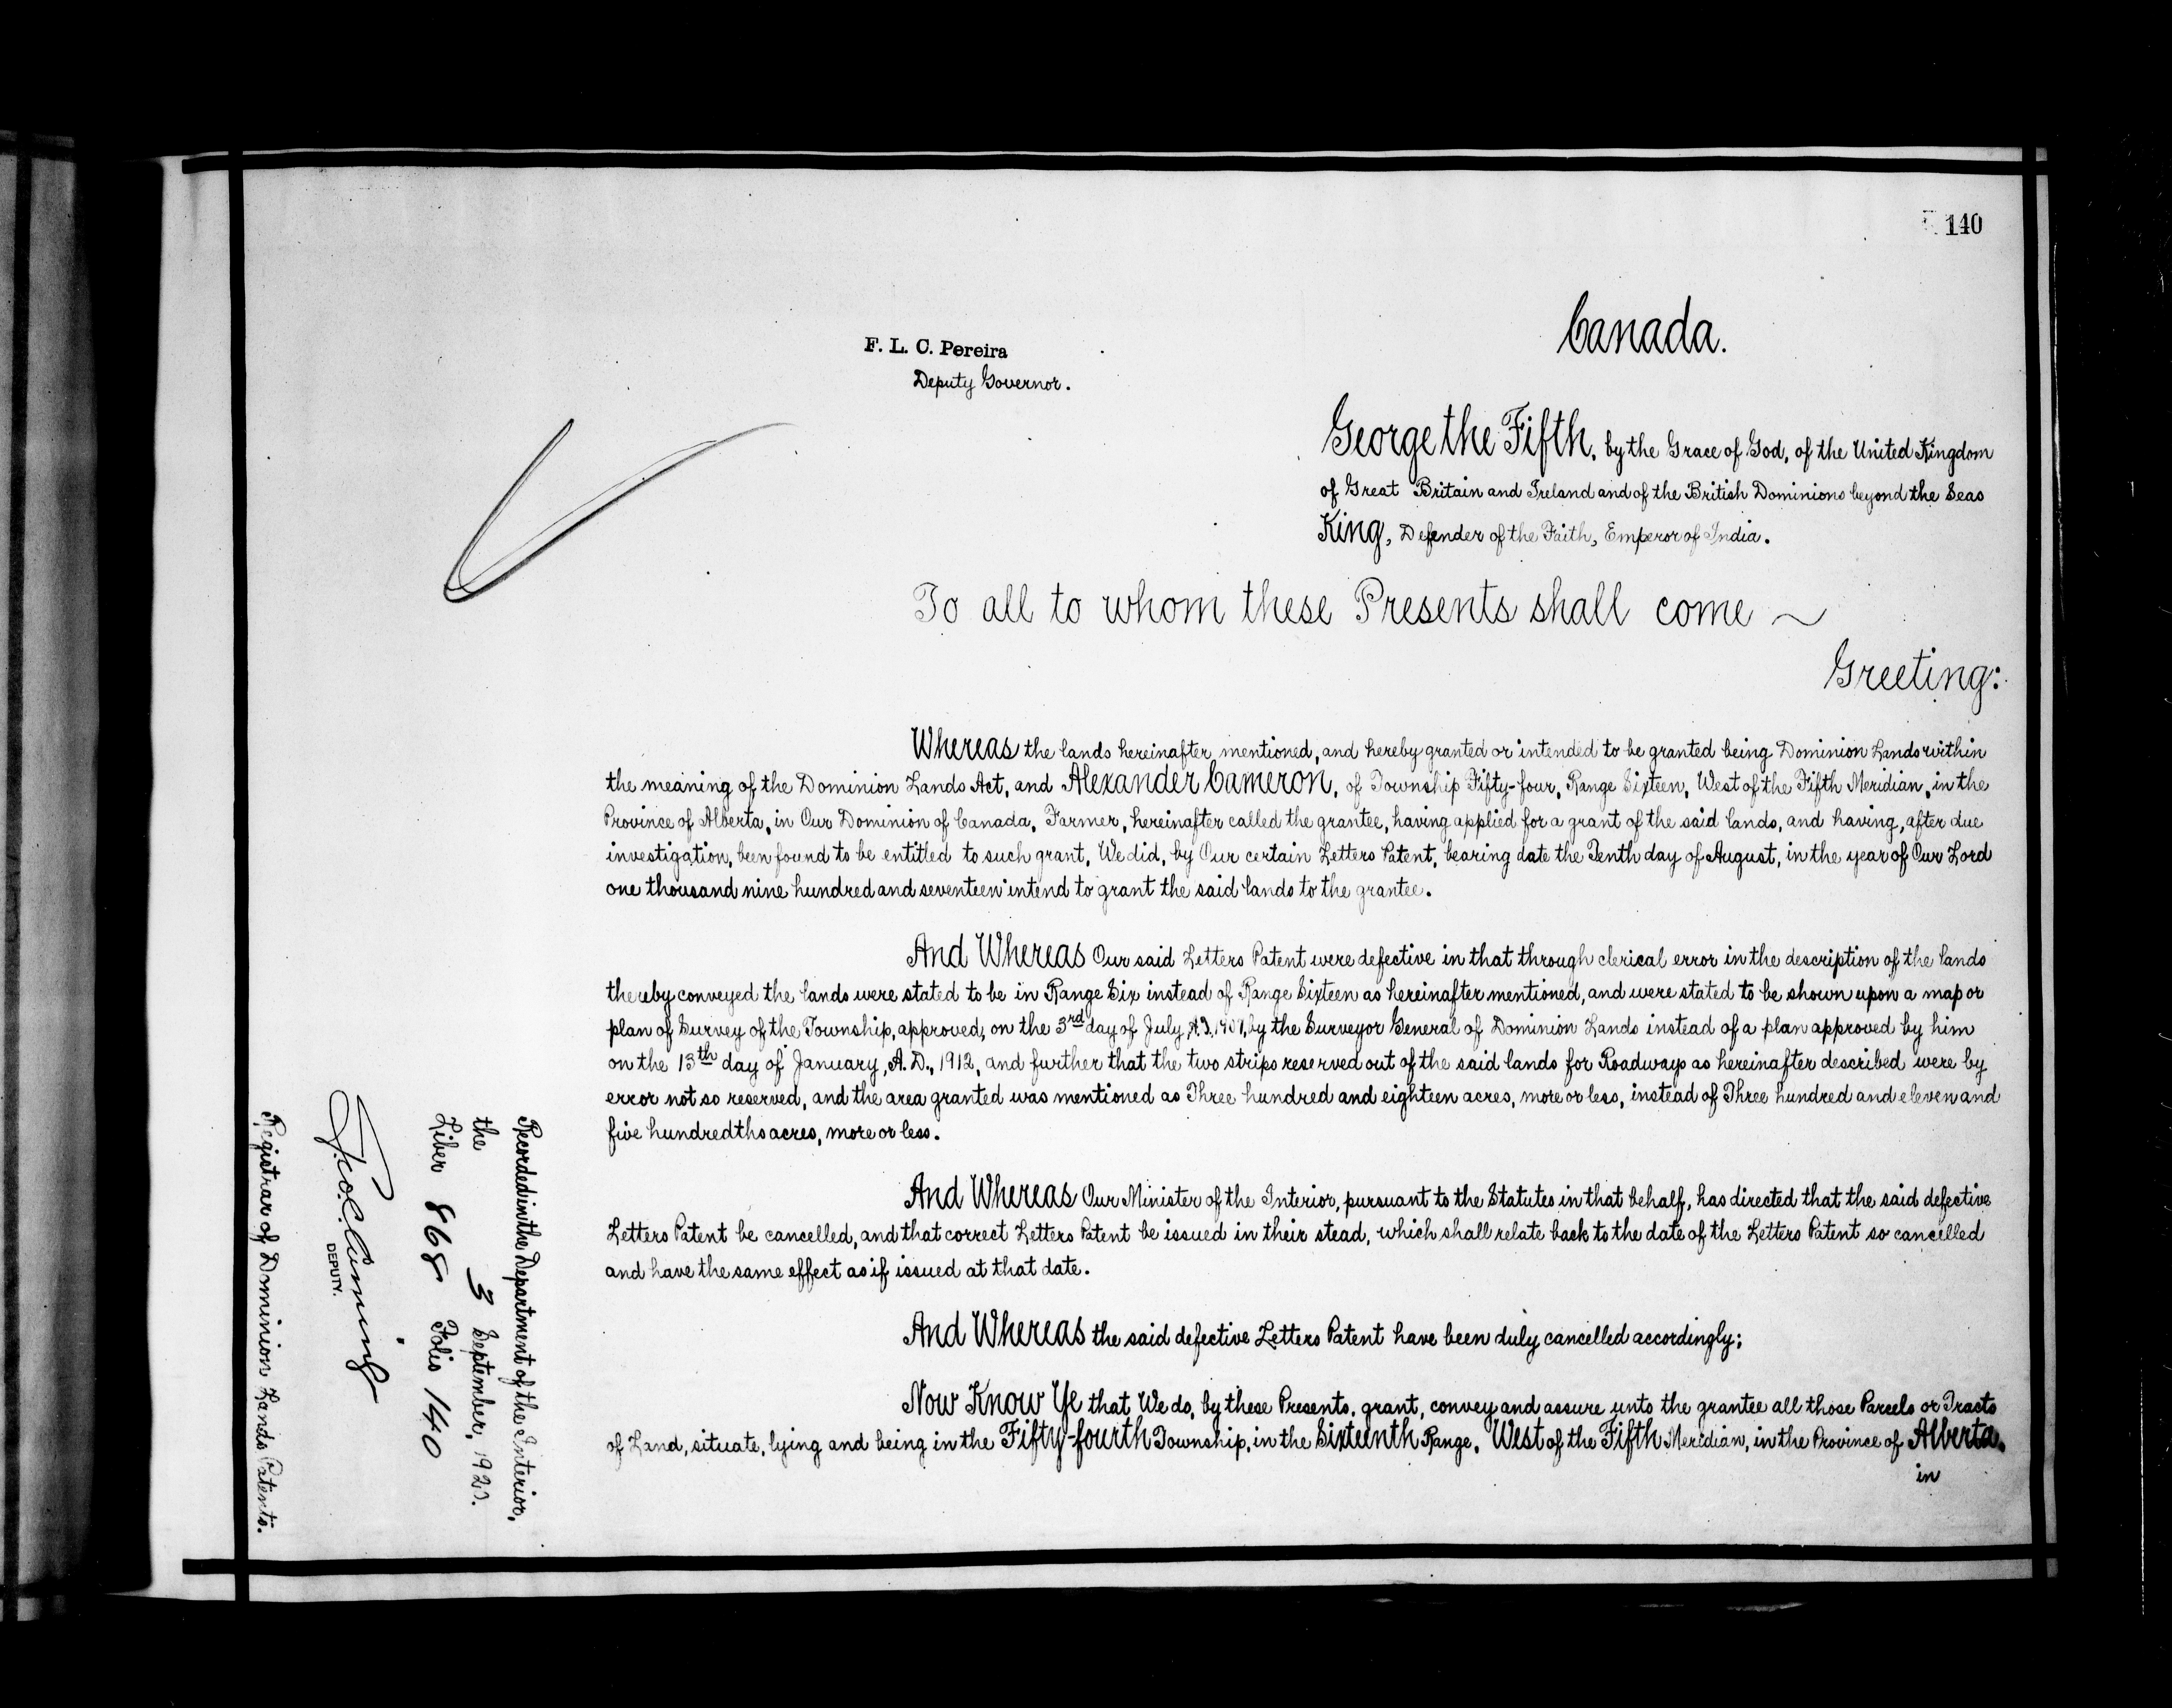 140
Canada.
F. L. C. Pereira
Deputy Governor.
George the Fifth, by the Grace of God, of the United Kingdom
of Great Britain and Ireland and of the British Dominions beyond the Seas
King, Defender of the Faith, Emperor of India.
To all to whom these Presents shall come ~
Greeting:
Whereas the lands hereinafter mentioned, and hereby granted or intended to be granted being Dominion Lands within
the meaning of the Dominion Lands Act, and Alexander Cameron, of Township Fifty-four, Range Sixteen, West of the Fifth Meridian, in the
Province of Alberta, in Our Dominion of Canada, Farmer, hereinafter called the grantee, having applied for a grant of the said lands, and having, after due
investigation, been found to be entitled to such grant, We did, by Our certain Letters Patent, bearing date the Tenth day of August, in the year of Our Lord
one thousand nine hundred and seventeen intend to grant the said lands to the grantee.
And Whereas Our said Letters Patent were defective in that through clerical error in the description of the lands
thereby conveyed the lands were stated to be in Range Six instead of Range Sixteen as hereinafter mentioned, and were stated to be shown upon a map or
plan of Survey of the Township, approved, on the 3rd day of July, A.D., by the Surveyor General of Dominion Lands instead of a plan approved by him
on the 13th day of January, A.D., 1912, and further that the two strips reserved out of the said lands for Roadways as hereinafter described were by
error not so reserved, and the area granted was mentioned as Three hundred and eighteen acres, more or less, instead of Three hundred and eleven and
five hundredths acres, more or less.
And Whereas Our Minister of the Interior, pursuant to the Statutes in that behalf, has directed that the said defective
Letters Patent be cancelled, and that correct Letters Patent be issued in their stead, which shall relate back to the date of the Letters Patent so cancelled
and have the same effect as if issued at that date.
And Whereas the said defective Letters Patent have been duly cancelled accordingly;
Now Know Ye that We do, by these Presents, grant, convey and assure unto the grantee all those Parcels or Tracts
of Land, situate, lying and being in the Fifty-fourth Township, in the Sixteenth Range, West of the Fifth Meridian, in the Province of Alberta,
in
Recorded in the Department of the Interior,
the 3 September,
Liber 868 Folio 140
DEPUTY.
Registrar of Dominion Lands Patents.